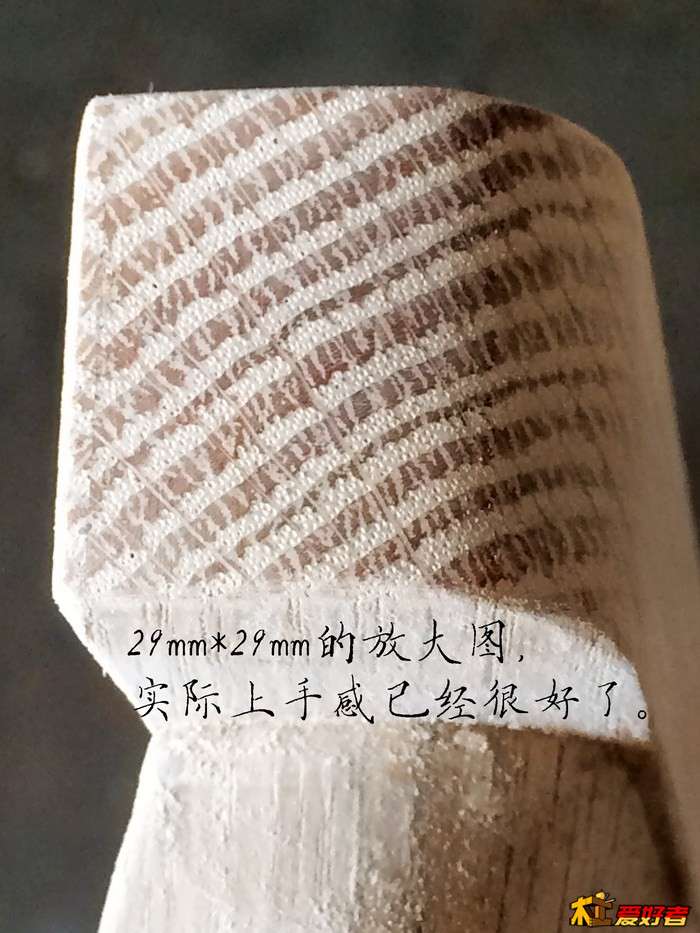 29mm*29mm的放大图，
实际上手感已经很好了。
爱好者